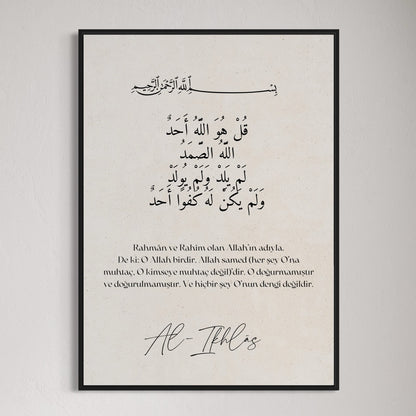 بِسْمِ اللَّهِ الرَّحْمَٰنِ الرَّحِيمِ
قُلْ هُوَ اللَّهُ أَحَدٌ
اللَّهُ الصَّمَدُ
لَمْ يَلِدْ وَلَمْ يُولَدْ
وَلَمْ يَكُنْ لَهُ كُفُوًا أَحَدٌ
Rahmân ve Rahim olan Allah'ın adıyla.
De ki: O Allah birdir. Allah samed (her şey O'na
muhtaç, O kimseye muhtaç değil)'dir. O doğurmamıştır
ve doğurulmamıştır. Ve hiçbir şey O'nun dengi değildir.
Al-Ikhlâs